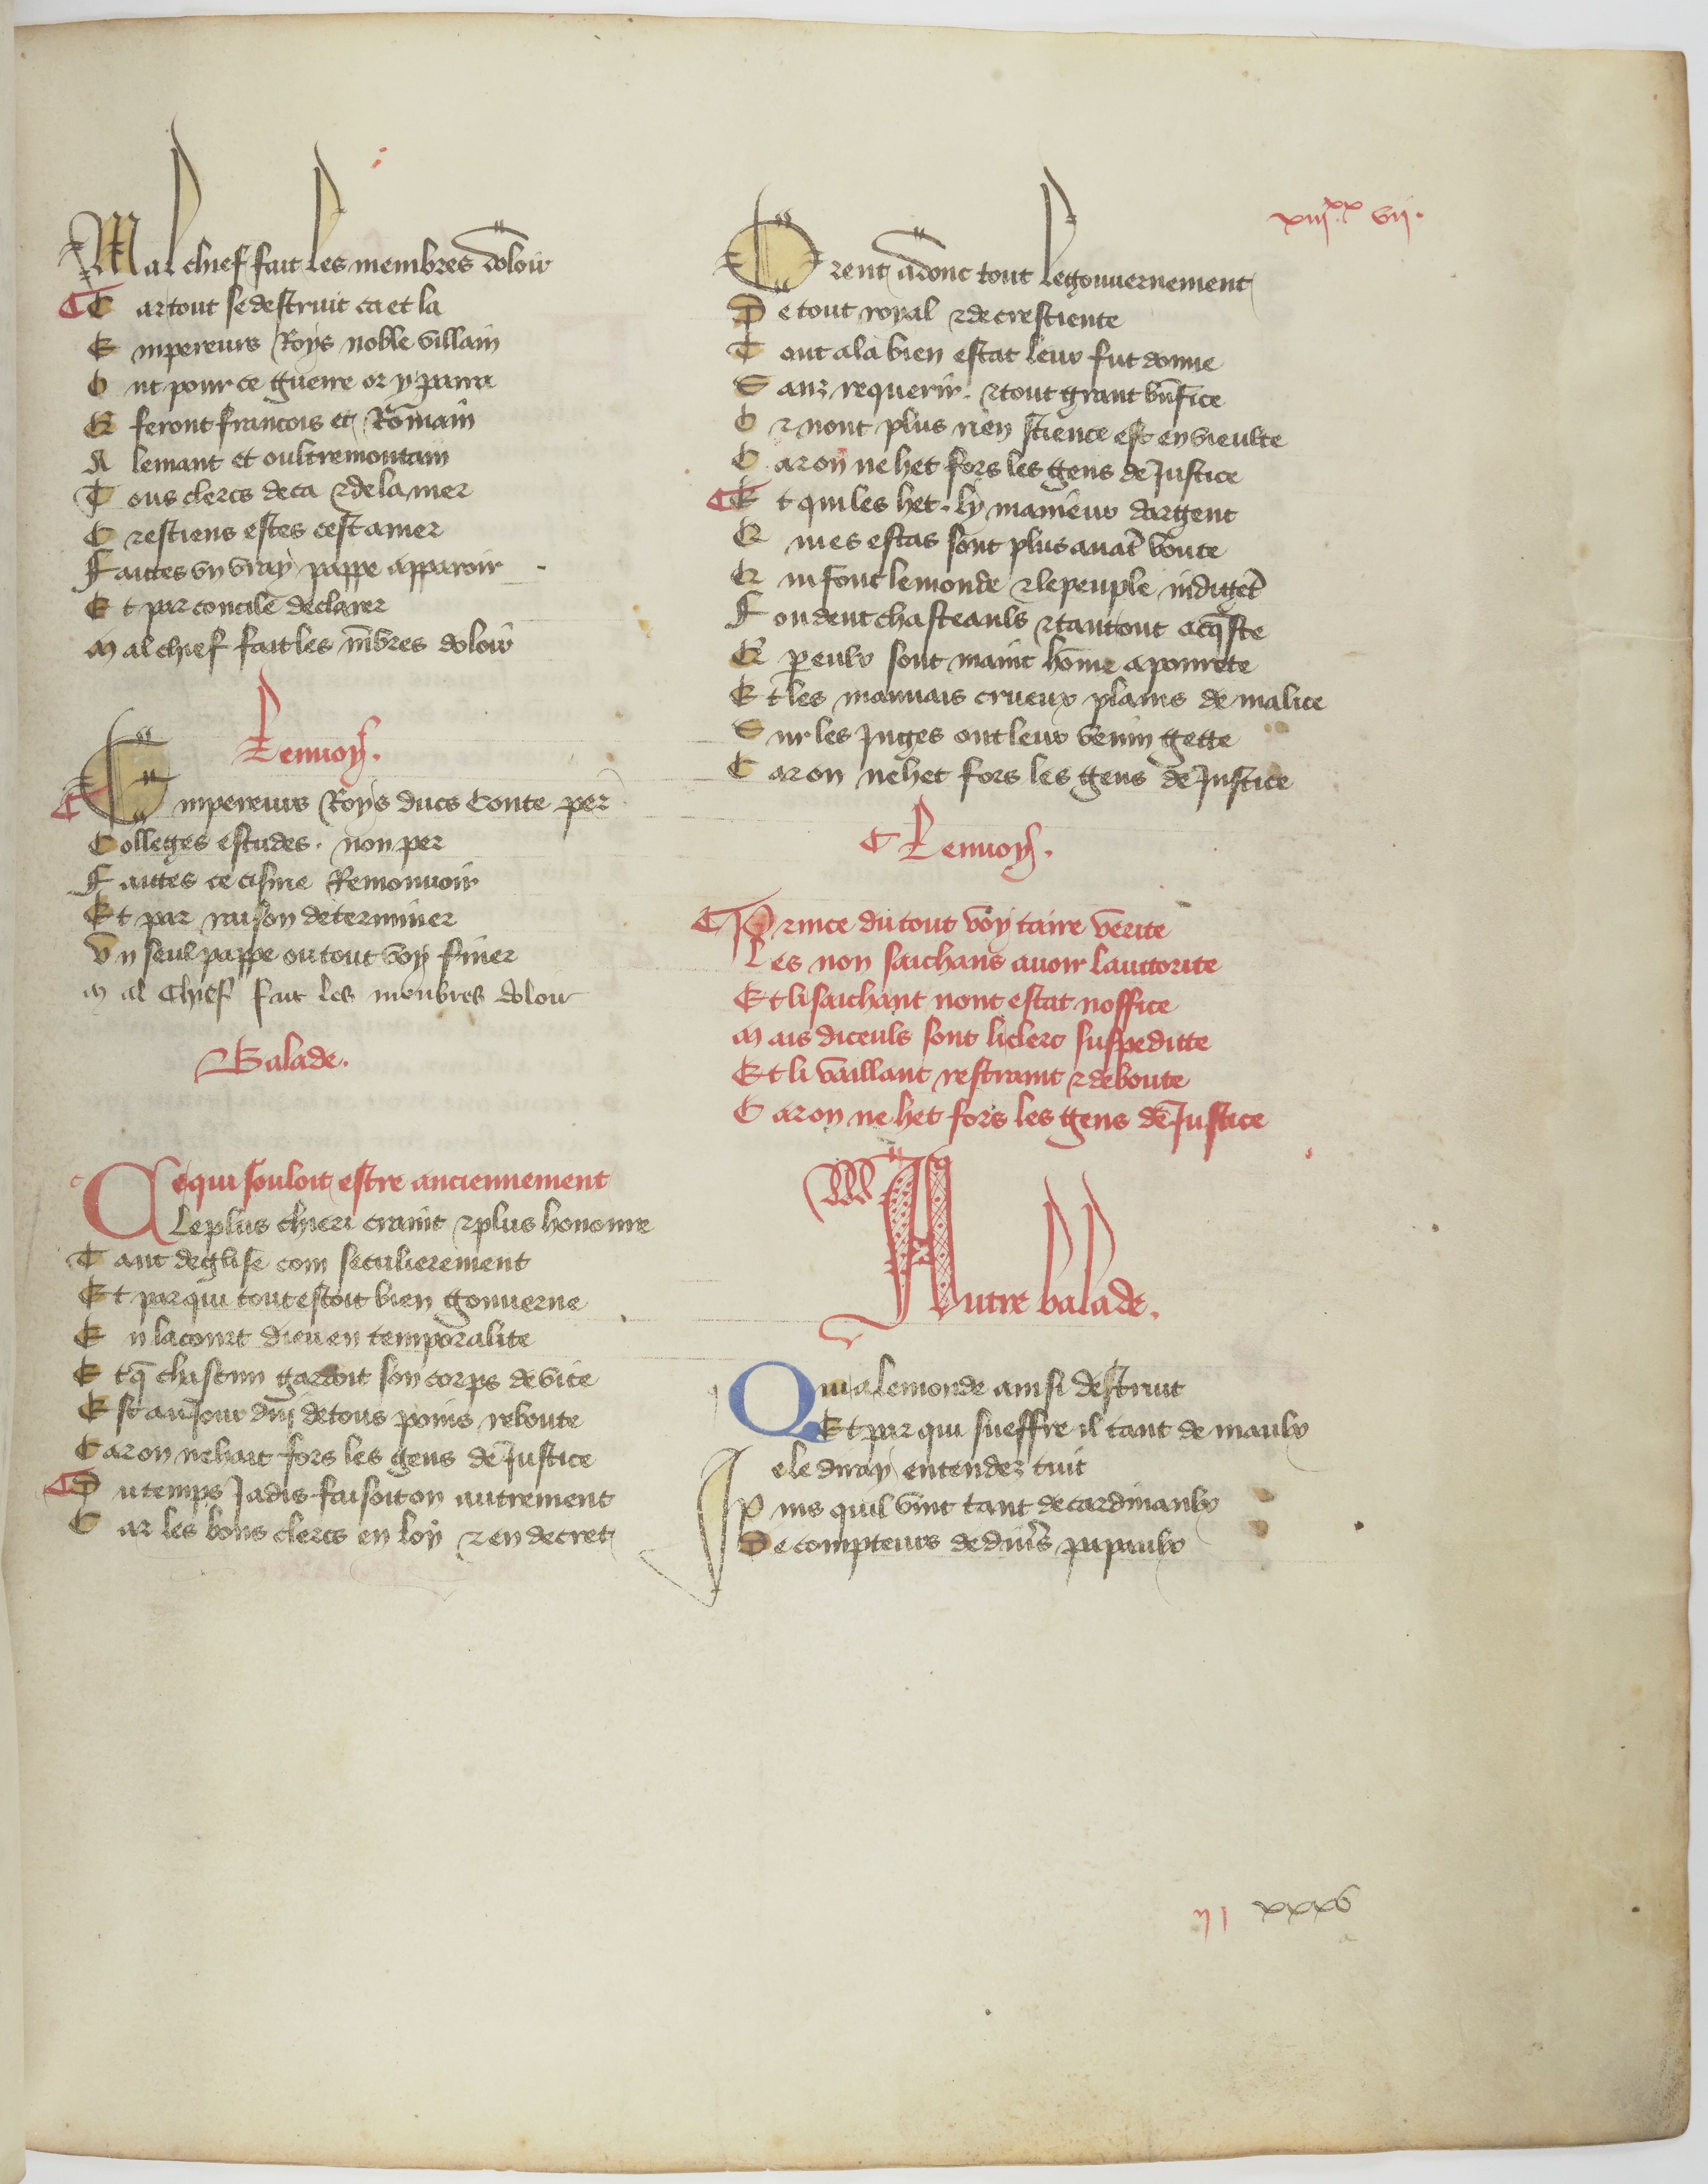 xiiij.xx vij.
Mal chief fait les membres doloir
Car tout se destruit ca et la
Empereurs Roys noble villain
Ont pour ce guerre or y parra
Et feront francois et Rommain
Alemant et oultremontain
Tous clercs deca & dela mer
Crestiens estes cest amer
Faittes un vray pappe apparoir
Et par concile declarer
Mal chief fait les mebres doloir
Lenvoy.
Empereurs Roys ducs Conte per
Colleges estudes. non per
Faittes ce cisme Remouvoir
Et par raison determiner
Un seul pappe ou tout voy finer
Mal Chief fait les membres doloir
Balade.
Ce qui souloit estre anciennement
Le plus chieri craint & plus honoure
Tant deglise com seculierement
Et par qui tout estoit bien gouverne
En la court dieu en temporalite
Et q chascun gardoit son corps de vice
Est au Jour dui de tous poins reboute
Car on ne hait fors les gens de Justice
Du temps Jadis faisoit on autrement
Car les bons clercs en loy & en decret
Orent adonc tout le gouvernement
De tout royal & de crestiente
Tout a la bien estat leur fut donne
Sanz requerir. & tout grant bnfice
Or nont plus rien science est en vieulte
Car on ne het fors les gens de Justice
Et qui les het. ly manieur dargent
En mes estas sont plus avat boute
En font le monde & le peuple indiget
Fondent chasteauls & tantout acqste
Et p eulx sont maint home a pourete
Et les mauvais crueux plains de malice
Sur les Juges ont leur venin gette
Car on ne het fors les gens de Justice
Lenvoy.
Prince du tout voy taire verite
Les non saichans avoir lauttorite
Et li saichant nont estat noffice
Mais diceuls sont li clerc suspeditte
Et li vaillant restraint & deboute
Car on ne het fors les gens de Justice
Autre balade.
Qui a le monde ainsi destruit
Et par qui sueffre il tant de maulx
Je le diray entendez tuit
Puis quil vint tant de cardinaulx
De compteurs de divs papaulx